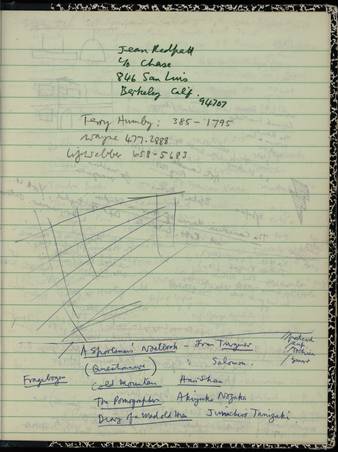 Jean Redpath
c/o Chase
846 San Luis
Berkeley Calif.
94707
Terry Humby: 385-1795
Wayne 477-2888
Webber 658-5683
A Sportsman's Notebook - Ivan Turgenev
(Questionnaire) " Salomon
Fragebogen
Cold Mountain Han Shan
The Pornographers Akiyuki Nozaka
Diary of a Mad old Man Junichiro Tanizaki